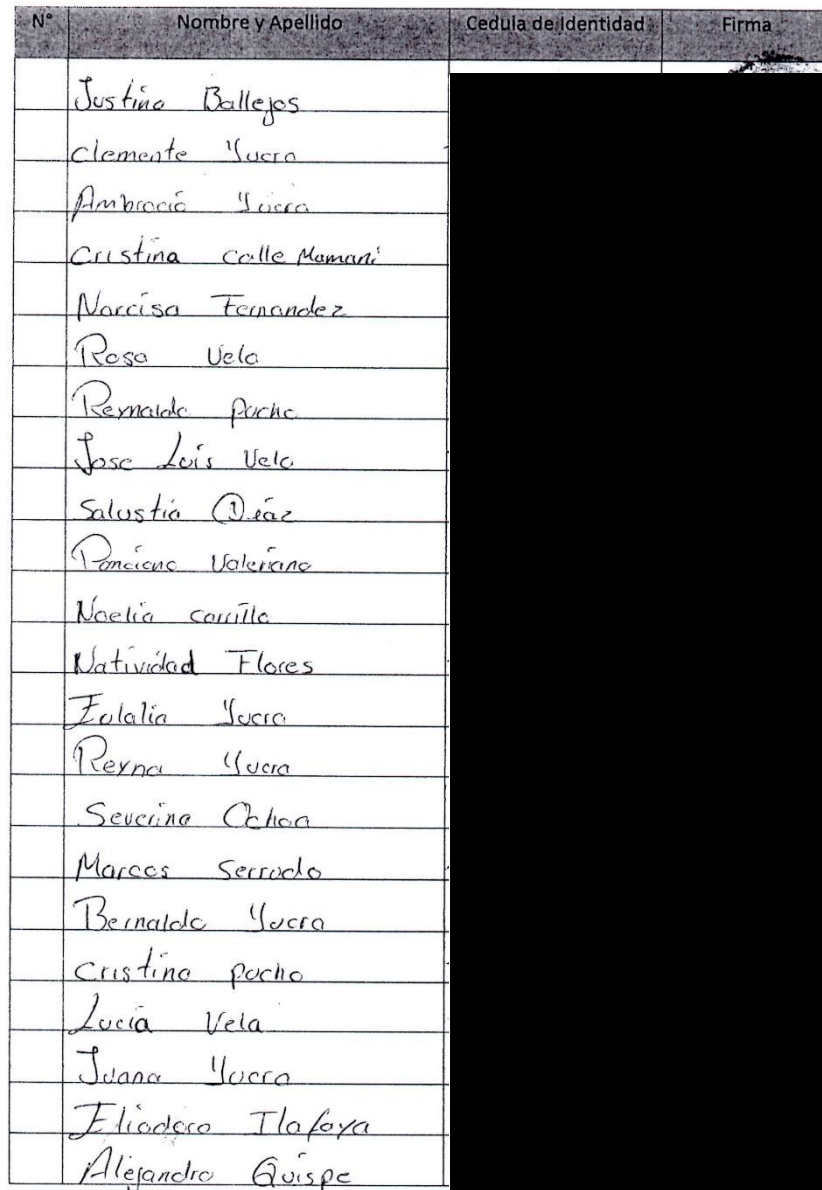 N° Nombre y Apellido Cedula de Identidad Firma
Justino Ballejos
Clemente Yucra
Ambrocio Yucra
Cristina Calle Mamani
Narcisa Fernandez
Rosa Vela
Reynaldo Pacho
Jose Luis Vela
Salustia Diáz
Ponciano Valeriano
Noelia Carrillo
Natividad Flores
Eulalia Yucra
Reyna Yucra
Severino Ochoa
Marcos Serrudo
Bernaldo Yucra
Cristina Pacho
Lucia Vela
Juana Yucra
Eliodoro Ilafaya
Alejandro Quispe